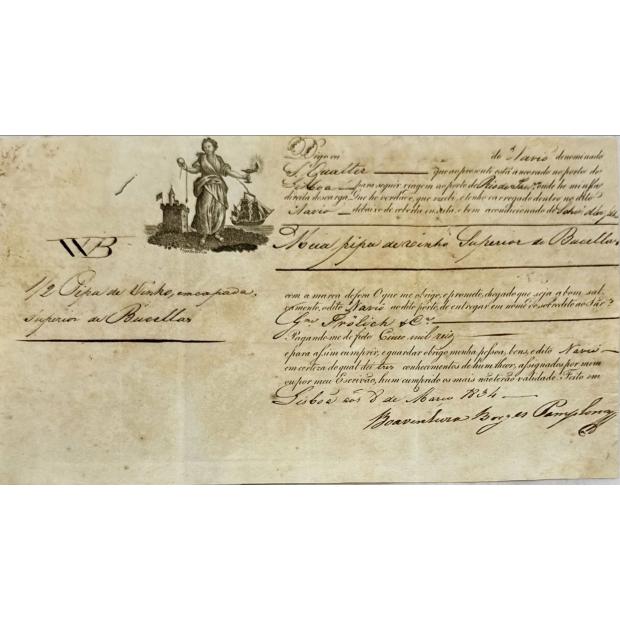 WB
1/2 Pipa de Vinho, emcapada,
Superior de Bucellas
Digo eu do Navio denominado
S. Gualter que ao presente está ancorado no porto de
Lisboa para seguir viagem ao porto de Rio de onde he minha
direita descarga. Que he verdade que recebi, e tenho carregado dentro no dito
Navio debaixo de coberta inxuta, e bem acondicionado do
Meia pipa de vinho Superior de Bucellas
com a marca de fora O que me obrigo, e prometo, chegado que seja a bom sal-
vamento, o dito Navio ao dito porto, de entregar em nome do sobredito ao
Frölich & Ca
Pagando-me de frete Cinco mil reis
e para assim cumprir, e guardar obrigo minha pessoa, bens, e dito Navio
em certeza do qual dei tres conhecimentos de hum theor, assignados por mim
ou por meu Escrivão, hum cumprido os mais não terão validade. Feito em
Lisboa aos 8 de Março 1834
Boaventura Borges Pamplona